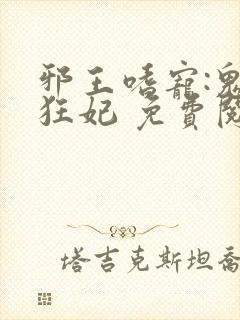 邪王嗜寵:鬼
狂妃 免費閱
塔吉克斯坦喬